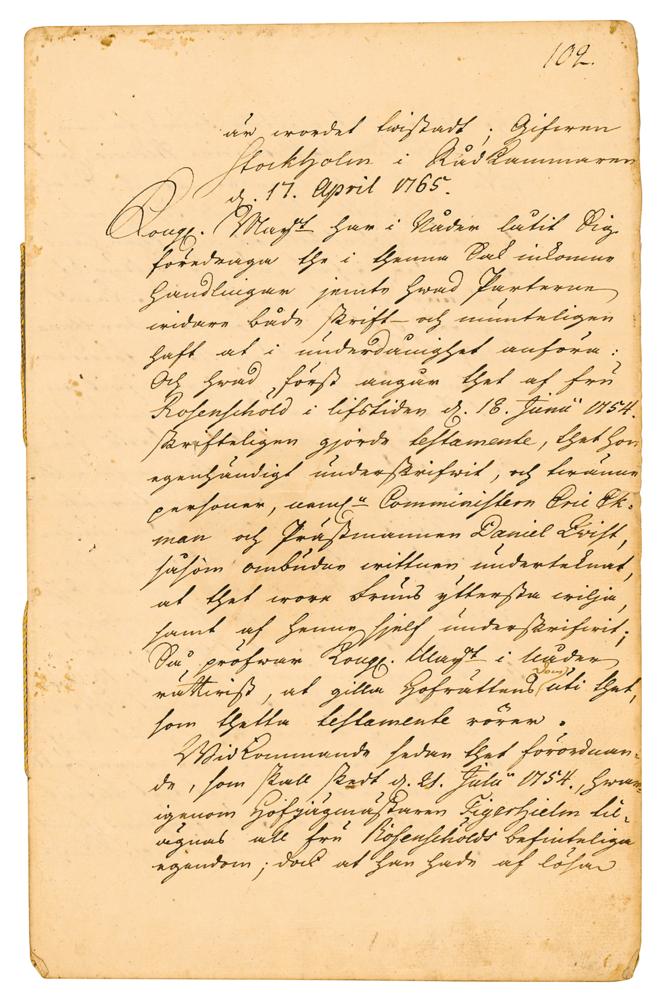 102.
är wordet twistadt; Gifwen
Stockholm i RådCammaren
d. 17. April 1765.
Kongl. Mayst har i Nåder låtit Sig
föredraga the i thenna Sak inkomne
Handlingar jemte hwad Parterne
widare både skrift- och munteligen
haft at i underdånighet anföra:
Och hwad först angår thet af fru
Rosenschöld i lifstiden d. 18. Junii 1754.
skrifteligen gjorde testamente, thet hon
egenhändigt underskrifwit, och twänne
personer, neml:n Comministern Eric Ek-
man och Präste­mannen Daniel Qvist,
såsom ombudne wittnen undertecknat,
at thet wore Fruns yttersta wilja,
samt af henne sjelf underskrifwit;
Så pröfwar Kongl. Mayst i Nåder
rättwist, at gilla Hofrättens Dom uti thet,
som thetta testamente rörer.
Widkommande sedan thet förordnan-
de, som skall skedt d. 21. Julii 1754., hwar-
igenom Hofjägmästaren Tigerhielm til-
ägnas all fru Rosenschölds befinteliga
egendom; dock at han hade af lösa